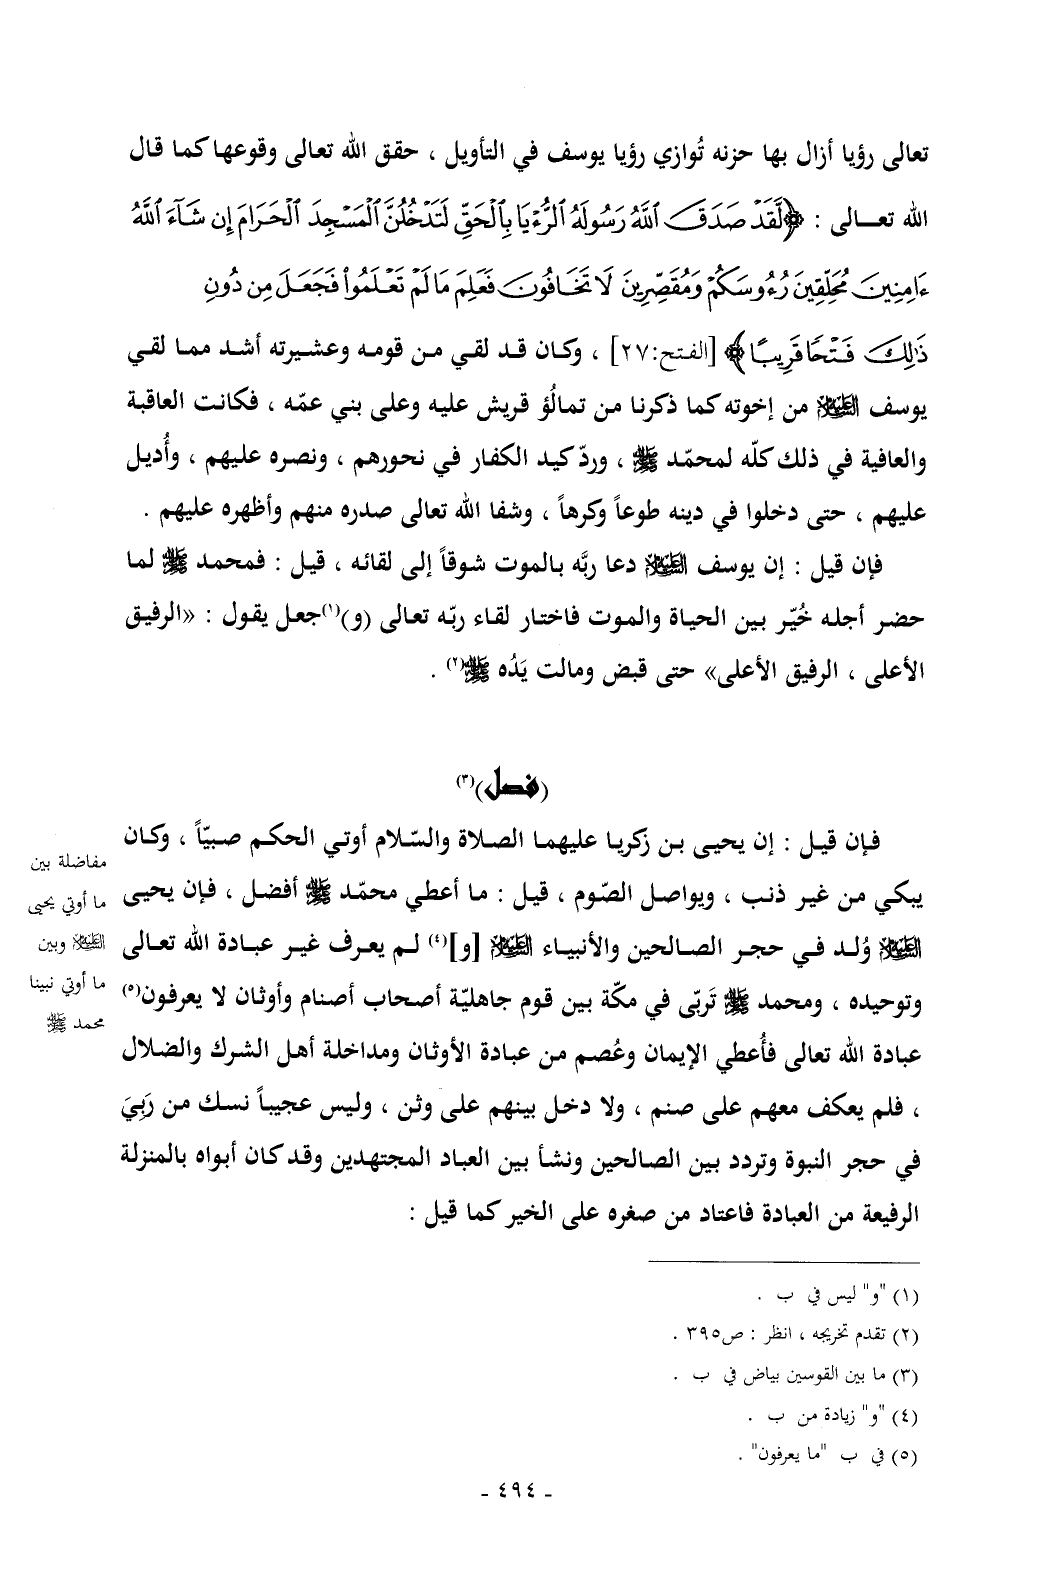 تعالى رؤيا أزال بها حزنه تُوازي رؤيا يوسف في التأويل ، حقق الله تعالى وقوعها كما قال
الله تعـــالى : ﴿لَّقَدۡ صَدَقَ ٱللَّهُ رَسُولَهُ ٱلرُّءۡيَا بِٱلۡحَقِّ لَتَدۡخُلُنَّ ٱلۡمَسۡجِدَ ٱلۡحَرَامَ إِن شَآءَ ٱللَّهُ
ءَامِنِينَ مُحَلِّقِينَ رُءُوسَكُمۡ وَمُقَصِّرِينَ لَا تَخَافُونَ فَعَلِمَ مَا لَمۡ تَعۡلَمُواْ فَجَعَلَ مِن دُونِ
ذَٰلِكَ فَتۡحٗا قَرِيبًا﴾ [الفتح:٢٧] ، وكـان قد لقي من قومه وعشيرته أشد مما لقي
يوسف ؑ من إخوته كما ذكرنا من تمالُؤ قريش عليه وعلى بني عمّه ، فكانت العاقبة
والعافية في ذلك كلّه لمحمّد ﷺ ، وردّ كيد الكفار في نحورهم ، ونصره عليهم ، وأُديل
عليهم ، حتى دخلوا في دينه طوعاً وكرهاً ، وشفا الله تعالى صدره منهم وأظهره عليهم .
فإن قيل : إن يوسف ؑ دعا ربَّه بالموت شوقاً إلى لقائه ، قيل : فمحمد ﷺ لما
حضر أجله خُيّر بين الحياة والموت فاختار لقاء ربّه تعالى (و)(١)جعل يقول : «الرفيق
الأعلى ، الرفيق الأعلى» حتى قبض ومالت يَدُه ﷺ(٢) .
(فصل)(٣)
فإن قيل : إن يحيى بن زكريا عليهما الصلاة والسّلام أوتي الحكم صبيّاً ، وكان
يبكي من غير ذنب ، ويواصل الصّوم ، قيل : ما أعطي محمّد ﷺ أفضل ، فإن يحيى
ؑ وُلد في حجر الصالحين والأنبياء ؑ [و](٤) لم يعرف غير عبادة الله تعالى
وتوحيده ، ومحمد ﷺ تَربّى في مكّة بين قوم جاهليّة أصحاب أصنام وأوثان لا يعرفون(٥)
عبادة الله تعالى فأُعطي الإيمان وعُصم من عبادة الأوثان ومداخلة أهل الشرك والضلال
، فلم يعكف معهم على صنم ، ولا دخل بينهم على وثن ، وليس عجيباً نسك من رَبِيَ
في حجر النبوة وتردد بين الصالحين ونشأ بين العباد المجتهدين وقد كان أبواه بالمنزلة
الرفيعة من العبادة فاعتاد من صغره على الخير كما قيل :
مفاضلة بين
ما أوتي يحيى
ؑ وبين
ما أوتي نبينا
محمد ﷺ
(١) "و" ليس في ب .
(٢) تقدم تخريجه ، انظر : ص٣٩٥ .
(٣) ما بين القوسين بياض في ب .
(٤) "و" زيادة من ب .
(٥) في ب "ما يعرفون" .
- ٤٩٤ -